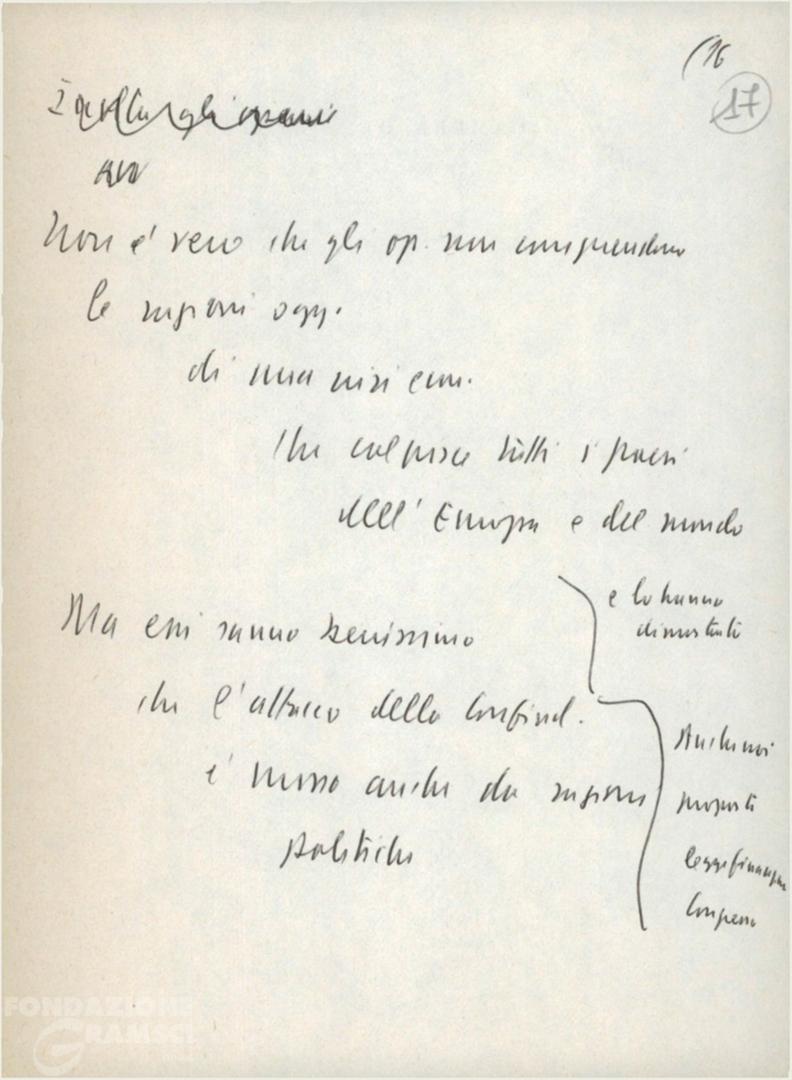 (16
17
Non è vero che gli op. non comprendano
le ragioni oggi
di una crisi econ.
che colpisce tutti i paesi
dell'Europa e del mondo
e lo hanno
dimostrato
Ma essi sanno benissimo
che l'attacco della Confind.
è mosso anche da ragioni
politiche
Anche noi
proposte
legge finanz
Congresso
FONDAZIONE
GRAMSCI